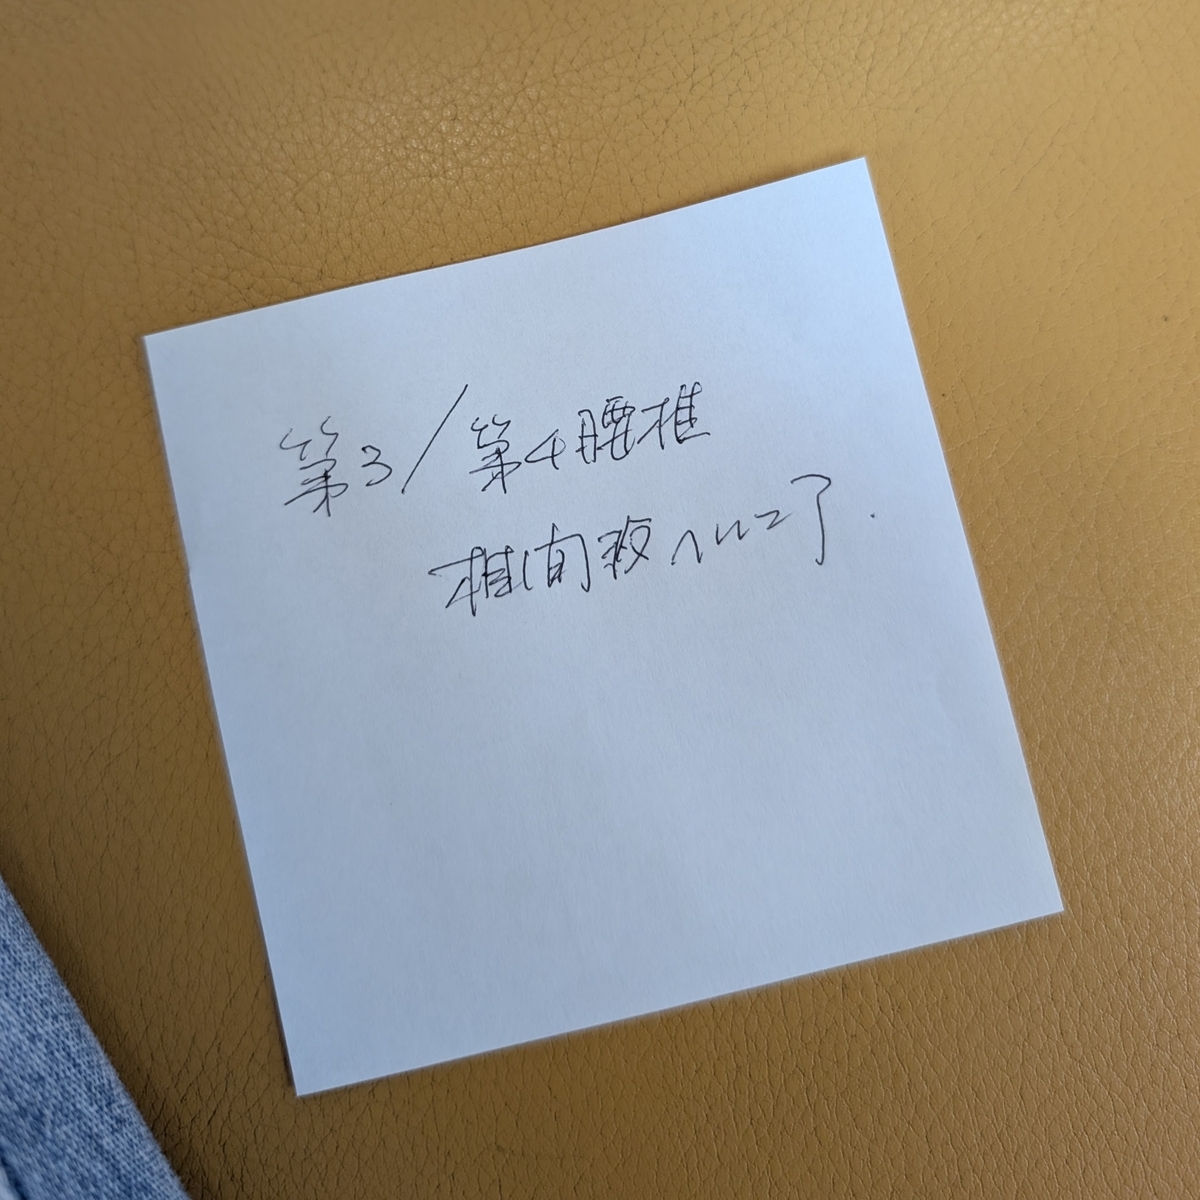 第3/第4腰椎
椎間板ヘルニア.